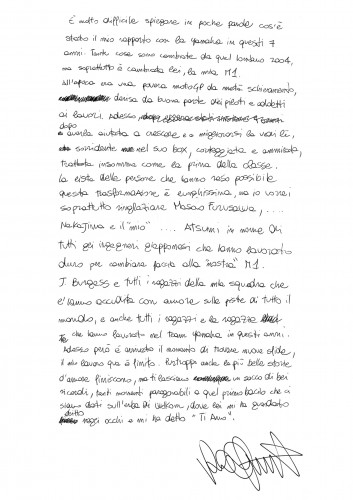 È molto difficile spiegare in poche parole cos'è
stato il mio rapporto con la Yamaha in questi 7
anni. Tante cose sono cambiate da quel lontano 2004,
ma soprattutto è cambiata lei, la mia M1.
All'epoca era una povera motoGP da metà schieramento,
derisa da buona parte dei piloti e addetti
ai lavori. Adesso,
dopo
averla aiutata a crescere e a migliorarsi la vedi lì,
sorridente nel suo box, corteggiata e ammirata,
trattata insomma come la prima della classe.
La lista delle persone che hanno reso possibile
questa trasformazione è lunghissima, ma io vorrei
soprattutto ringraziare Masao Furusawa, ....
Nakajima e il "mio" .... Atsumi in nome di
tutti gli ingegneri giapponesi che hanno lavorato
duro per cambiare faccia alla "nostra" M1.
J. Burgess e tutti i ragazzi della mia squadra che
l'hanno accudita con amore sulle piste di tutto il
mondo, e anche tutti i ragazzi e la ragazze
che hanno lavorato nel team Yamaha in questi anni.
Adesso però è arrivato il momento di trovare nuove sfide,
il mio lavoro qua è finito. Purtroppo anche le più belle storie
d'amore finiscono, ma ti lasciano un sacco di bei
ricordi, tanti momenti paragonabili a quel primo bacio che ci
siamo dati sull'erba di Welkom, dove lei mi ha guardato
dritto
negli occhi e mi ha detto "Ti Amo".